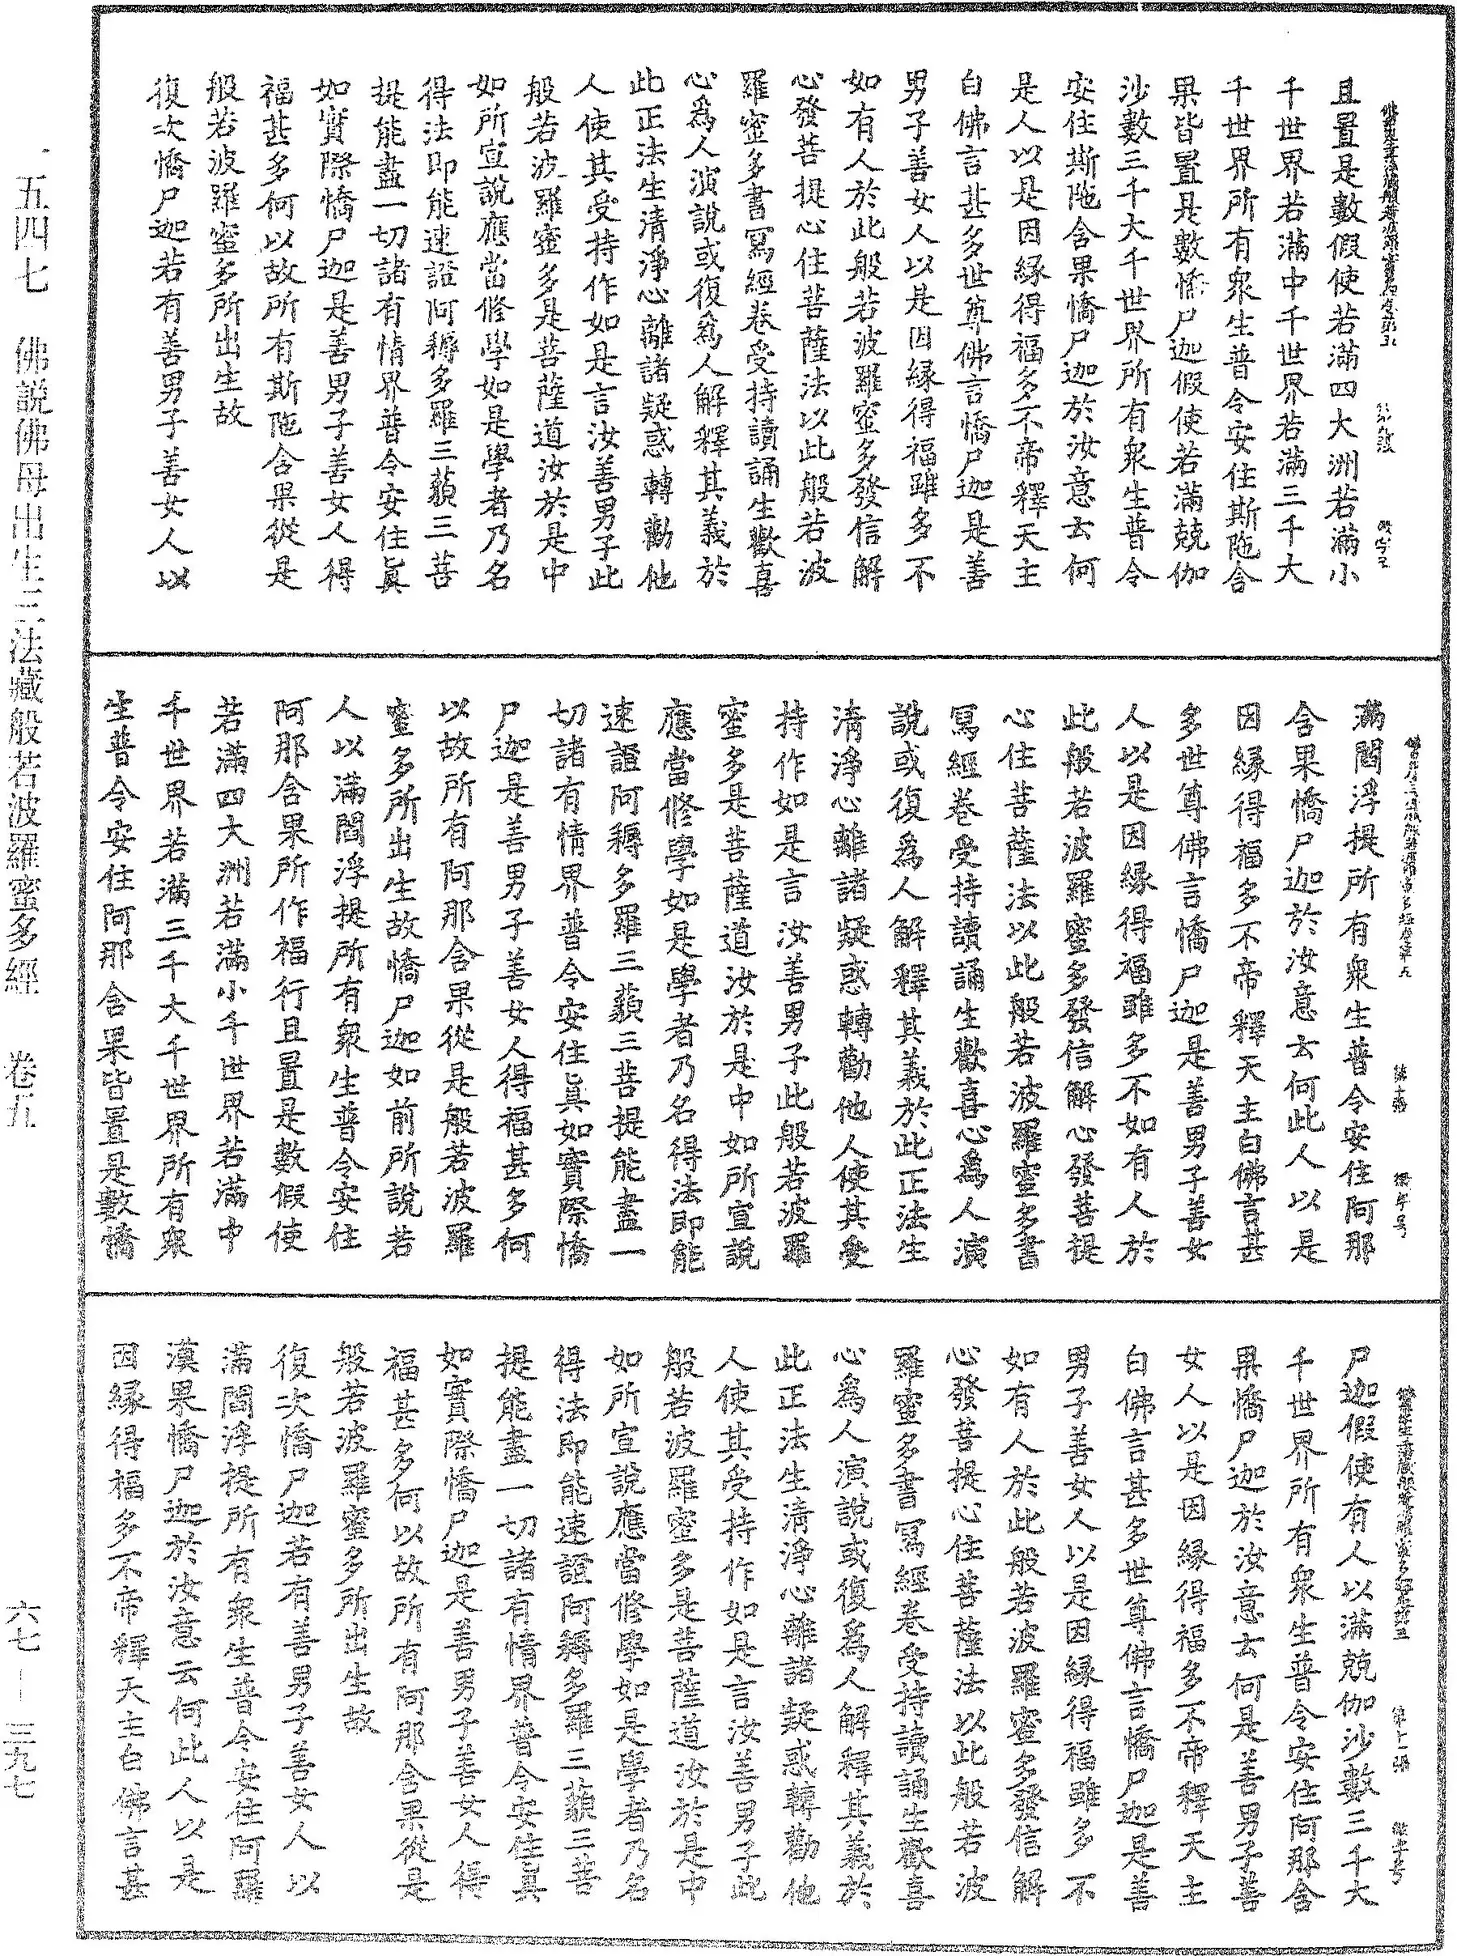 且置是數假使若滿四大洲若滿小
千世界若滿中千世界若滿三千大
千世界所有衆生普令安住斯陁含
果皆置是數憍尸迦假使若滿兢伽
沙數三千大千世界所有衆生普令
安住斯陁含果憍尸迦於汝意云何
是人以是因緣得福多不帝釋天主
白佛言甚多世尊佛言憍尸迦是善
男子善女人以是因緣得福雖多不
如有人於此般若波羅蜜多發信解
心發菩提心住菩薩法以此般若波
羅蜜多書寫經卷受持讀誦生歡喜
心爲人演說或復爲人解釋其義於
此正法生清淨心離諸疑惑轉勸他
人使其受持作如是言汝善男子此
般若波羅蜜多是菩薩道汝於是中
如所宣說應當修學如是學者乃名
得法即能速證阿耨多羅三藐三菩
提能盡一切諸有情界普令安住眞
如實際憍尸迦是善男子善女人得
福甚多何以故所有斯陁含果從是
般若波羅蜜多所出生故
復次憍尸迦若有善男子善女人以
滿閻浮提所有衆生普令安住阿那
含果憍尸迦於汝意云何此人以是
因緣得福多不帝釋天主白佛言甚
多世尊佛言憍尸迦是善男子善女
人以是因緣得福雖多不如有人於
此般若波羅蜜多發信解心發菩提
心住菩薩法以此般若波羅蜜多書
寫經卷受持讀誦生歡喜心爲人演
說或復爲人解釋其義於此正法生
清淨心離諸疑惑轉勸他人使其受
持作如是言汝善男子此般若波羅
蜜多是菩薩道汝於是中如所宣說
應當修學如是學者乃名得法即能
速證阿耨多羅三藐三菩提能盡一
切諸有情界普令安住眞如實際憍
尸迦是善男子善女人得福甚多何
以故所有阿那含果從是般若波羅
蜜多所出生故憍尸迦如前所說若
人以滿閻浮提所有衆生普令安住
阿那含果所作福行且置是數假使
若滿四大洲若滿小千世界若滿中
千世界若滿三千大千世界所有衆
生普令安住阿那含果皆置是數憍
尸迦假使有人以滿兢伽沙數三千大
千世界所有衆生普令安住阿那含
果憍尸迦於汝意云何是善男子善
女人以是因緣得福多不帝釋天主
白佛言甚多世尊佛言憍尸迦是善
男子善女人以是因緣得福雖多不
如有人於此般若波羅蜜多發信解
心發菩提心住菩薩法以此般若波
羅蜜多書寫經卷受持讀誦生歡喜
心爲人演說或復爲人解釋其義於
此正法生清淨心離諸疑惑轉勸他
人使其受持作如是言汝善男子此
般若波羅蜜多是菩薩道汝於是中
如所宣說應當修學如是學者乃名
得法即能速證阿耨多羅三藐三菩
提能盡一切諸有情界普令安住眞
如實際憍尸迦是善男子善女人得
福甚多何以故所有阿那含果從是
般若波羅蜜多所出生故
復次憍尸迦若有善男子善女人以
滿閻浮提所有衆生普令安住阿羅
漢果憍尸迦於汝意云何此人以是
因緣得福多不帝釋天主白佛言甚
一五四七 佛說佛母出生三法藏般若波羅蜜多經 卷五 六七—三九七